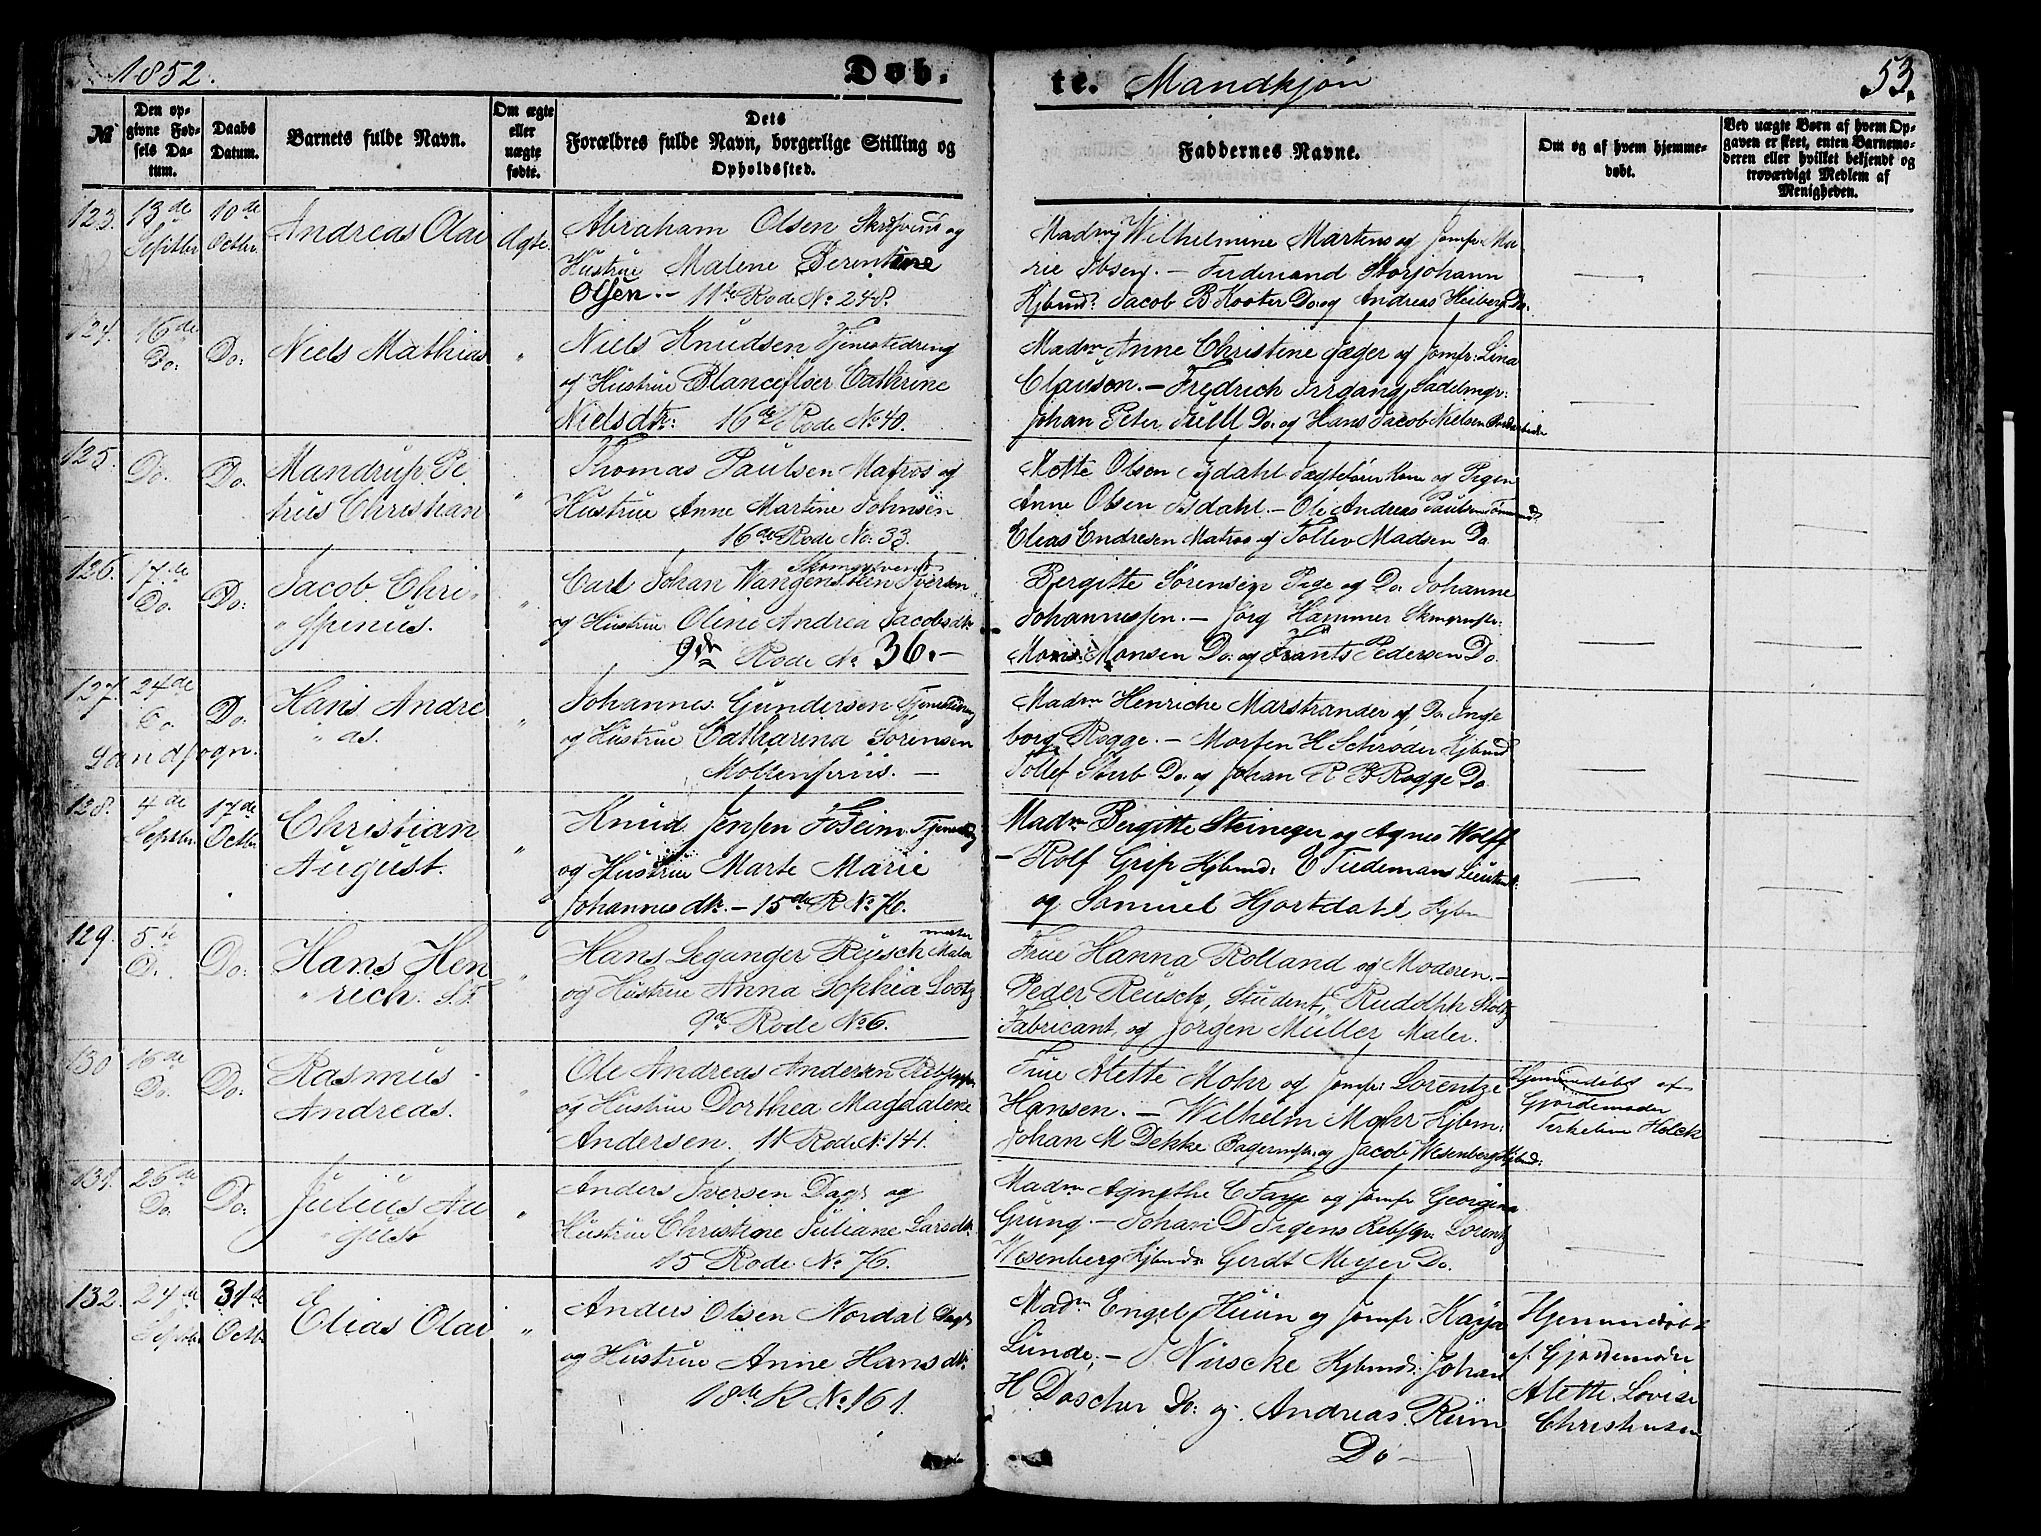 1852.
Døb-
te. Mandkjøn
53.
№
Den opgivne Fødsels Datum.
Daabs Datum.
Barnets fulde Navn.
Om ægte eller uægte fødte.
Dets Forældres fulde Navn, borgerlige Stilling og Opholdssted.
Faddernes Navne.
Om og af hvem hjemmedøbt.
Ved uægte Børn af hvem Opgaven er skeet, enten Barnemoderen eller hvilket bekjendt og troværdigt Medlem af Menigheden.
123. 13de Septbr. 10de Octbr. Andreas Olai ægte.
Abraham Olsen og
Hustrue Malene Berentine
Olsen. - 11te Rode No. 248.
Madm Wilhelmine Martens og Jomfr. Ma
rie Ibsen. - Ferdinand Storjohann
Kjbmd. Jacob B Kooter Do. og Andreas Heiberg Do.
124. 16de Do. Do. Niels Mathias "
Niels Knudsen Tjenestedreng
og Hustrue Blancefloer Cathrine
Nielsdtr. 16de Rode No. 40.
Madm Anne Christine Jæger og Jomfr. Lina
Clausen. - Fredrich Irrgang, Sadelmgr.
Johan Peter Do. og Hans Jacob Nielsen
125. Do. Do. Mandrup Pe
trus Christian "
Thomas Paulsen Matros og
Hustrue Anne Martine Johnsen
16de Rode No. 33.
Mette Olsen Kone og Pigen
Anne Olsen Isdahl. - Ole Andreas Paulsen
Elias Endresen Matros og Tollev Madsen Do.
126. 17de Do. Do. Jacob Chri
spenius. "
Skomgrsvend
Carl Johan Wangensteen Iversen
og Hustrue Oline Andrea Jacobsdtr
9de Rode No. 36. -
Bergitte Sørensen Pige og Do. Johanne
Johannessen. - Jørg Hammer Skmgrmstr.
Mons Monsen Do. og Frants Pedersen Do.
127. 24de Do. Do. Hans Andre
as. "
Johannes Gundersen
og Hustrue Catharina Sørensen
Møllenpriis. -
Landsogn.
Madm Henriche Marstrander og Do. Inge
borg Rogge. - Morten H Schrøder Kjbmd
Tollef Stub Do. og Johan R B Rogge Do.
128. 4de Septbr. 17de Octbr. Christian
August. "
Knud Jensen
og Hustrue Marte Marie
Johannesdtr. - 15de R No. 76.
Madm Bergitte Steineger og Agnes Wolff
- Rolf Grip Kjbmd: C Tiedemans Lieutnt.
og Samuel Hjortdahl, Kjbm
129. 5te Do. Do. Hans Hen
rich. S.F. "
mester
Hans Leganger Reusch Maler
og Hustrue Anna Sophia Lootz
9de Rode No 6.
Frue Hanna Rolland og Moderen. -
Peder Reusch, Student, Ruddolph Stoltz
Fabricant, og Jørgen Müller Maler.
130 16de Do. Do. Rasmus
Andreas. "
Ole Andreas Andersen
og Hustrue Dorthea Magdalene
Andersen. 11 Rode No. 141.
Frue Alette Mohr og Jomfr: Lorentze
Hansen. - Wilhelm Mohr Kjbm:
Johan M Dekke Bagermstr. og Jacob Wesenberg Kjbmd:
Hjemmedøbt af
Gjordemoder
Holck
131. 26de Do. Do. Julius Au
gust "
Anders Iversen Dagk og
Hustrue Christine Juliane Larsdtr.
15 Rode No. 76.
Madm Agnethe C Faye og Jomfr Georgina
Grung. - Johan D Irgens Lorentz
Wesenberg Kjbmd: Gerdt Meyer Do.
132. 24de Septbr. 31de Octbr. Elias Olai "
Anders Olsen Nordal Dagk
og Hustrue Anne Hansdtr.
18de R No. 161.
Madm Engel Huun og Jomfr. Kaja
Lunde, - Kjbmd: Johan
H Doscher Do. og Andreas Ruun
Do -
Hjemmedøbt
af Gjordemoder
Alette Lovise
Christensen